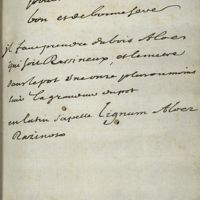 bon et de bonne seve
jl faut prendre du bois Aloes
qui soit Rassineux, et le mettre
dans le pot d'une once plus ou moins
suis la grandeur du pot
en latin s'apelle Lignum Aloes
Razinoso